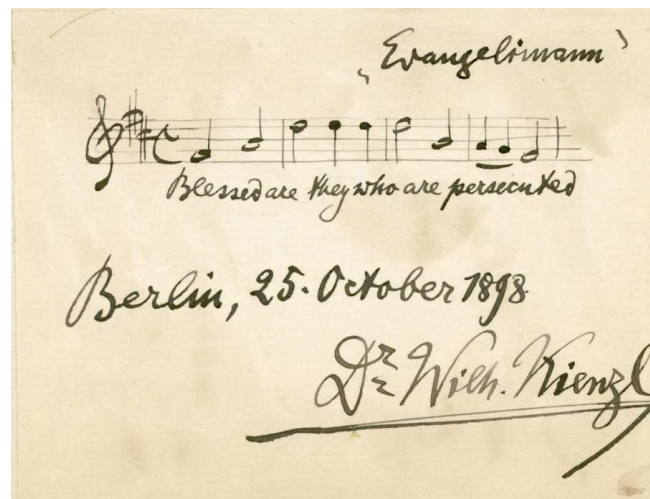 „Evangelimann"
Blessed are they who are persecuted
Berlin, 25. October 1898.
Dr. Wilh. Kienzl